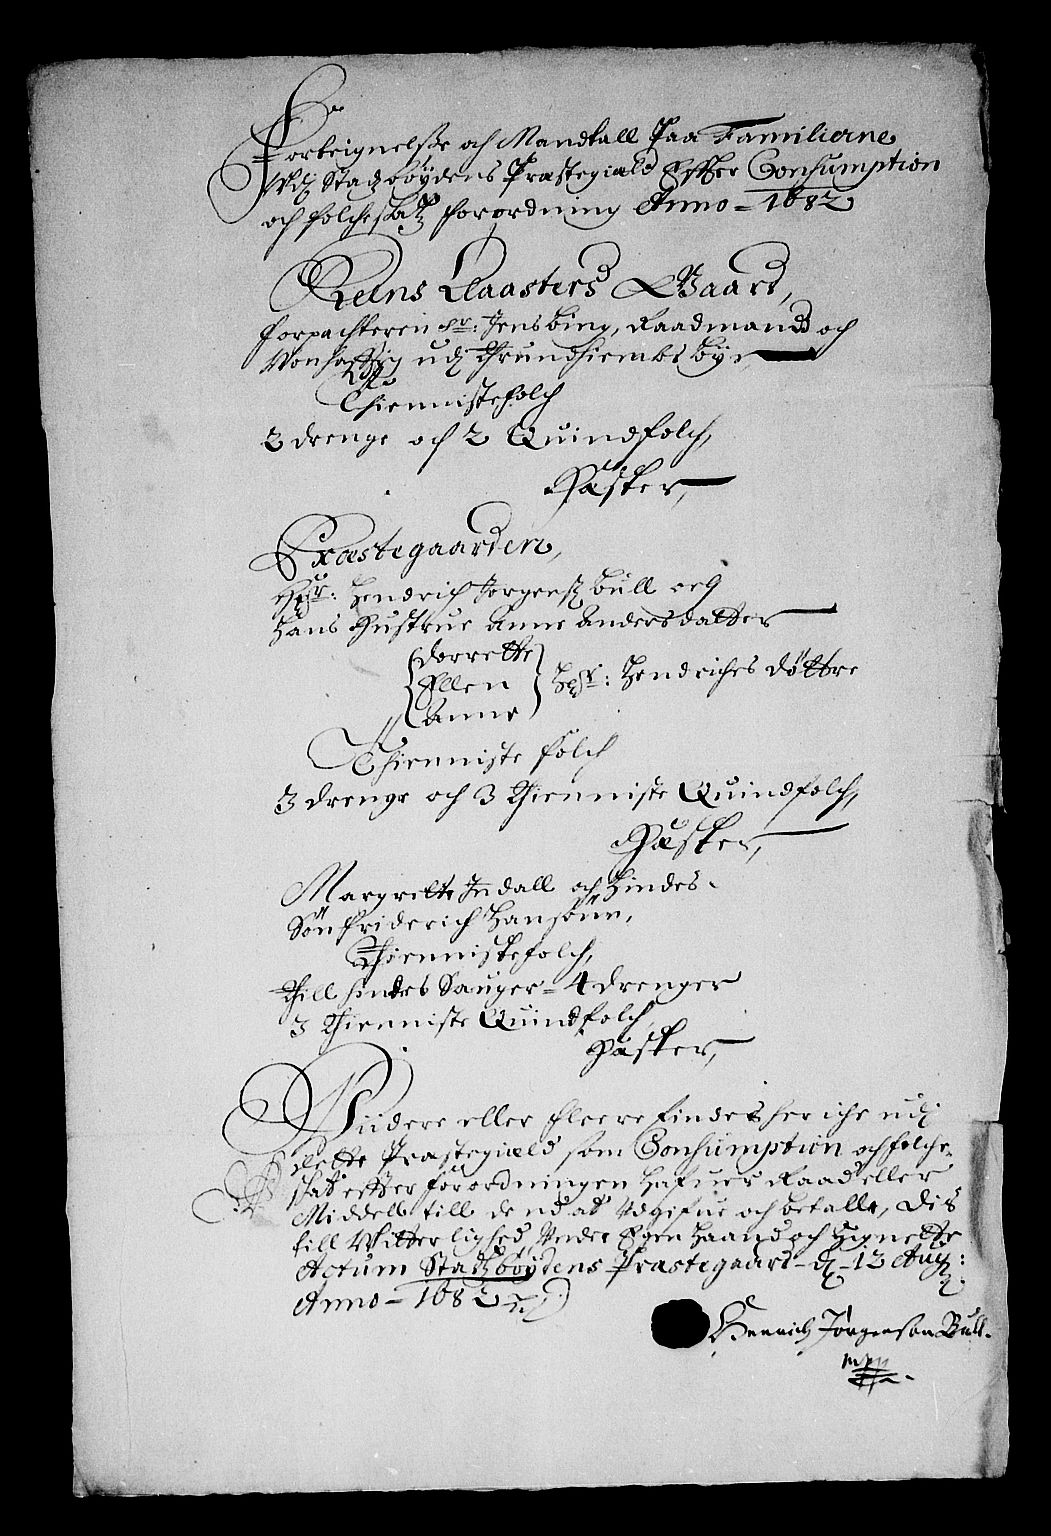 Forteignelsse och Mandtall Paa Familierne
Vdj Stadzböydens Præstegiæld Effter Consumption
och folcheskatz forordning Anno - 1682
Reins Claasters Gaard,
forpachteren Sr: Jens bing, Raadmand och
Vonhafftig udj Thrundhiembs bye
Thiennistefolch
2 drenge och 2 Quindfolch,
Hæsker,
Præstegaarden,
Hr: Hendrich Jørgensz Bull och
Hans Hustrue Anne Andersdatter
Dorrette
Ellen
Anne
Hr: Hendriches döttre
Thienniste folch
3 drenge och 3 Thienniste Quindfolch,
Hæsker,
Margrette Indall och Hindes
Sön friderich Hansönn,
Thiennistefolch,
Thill hindes Sauger - 4 drenger
3 Thienniste Quindfolch
Hæsker,
Viidere eller fleere findes her iche udj
dette Præstegiæld som Consumption och folche
skat effter forordningen hafuer Raad eller
Middell till dend at Udgifue och betalle, Dis
till Vitterlighed Under Egen Haand och Zignette
Actum Stadzböydens Præstegaard - d - 12 Aug:
Anno - 1682
Hennrich Jörgensön Bull.
mpp